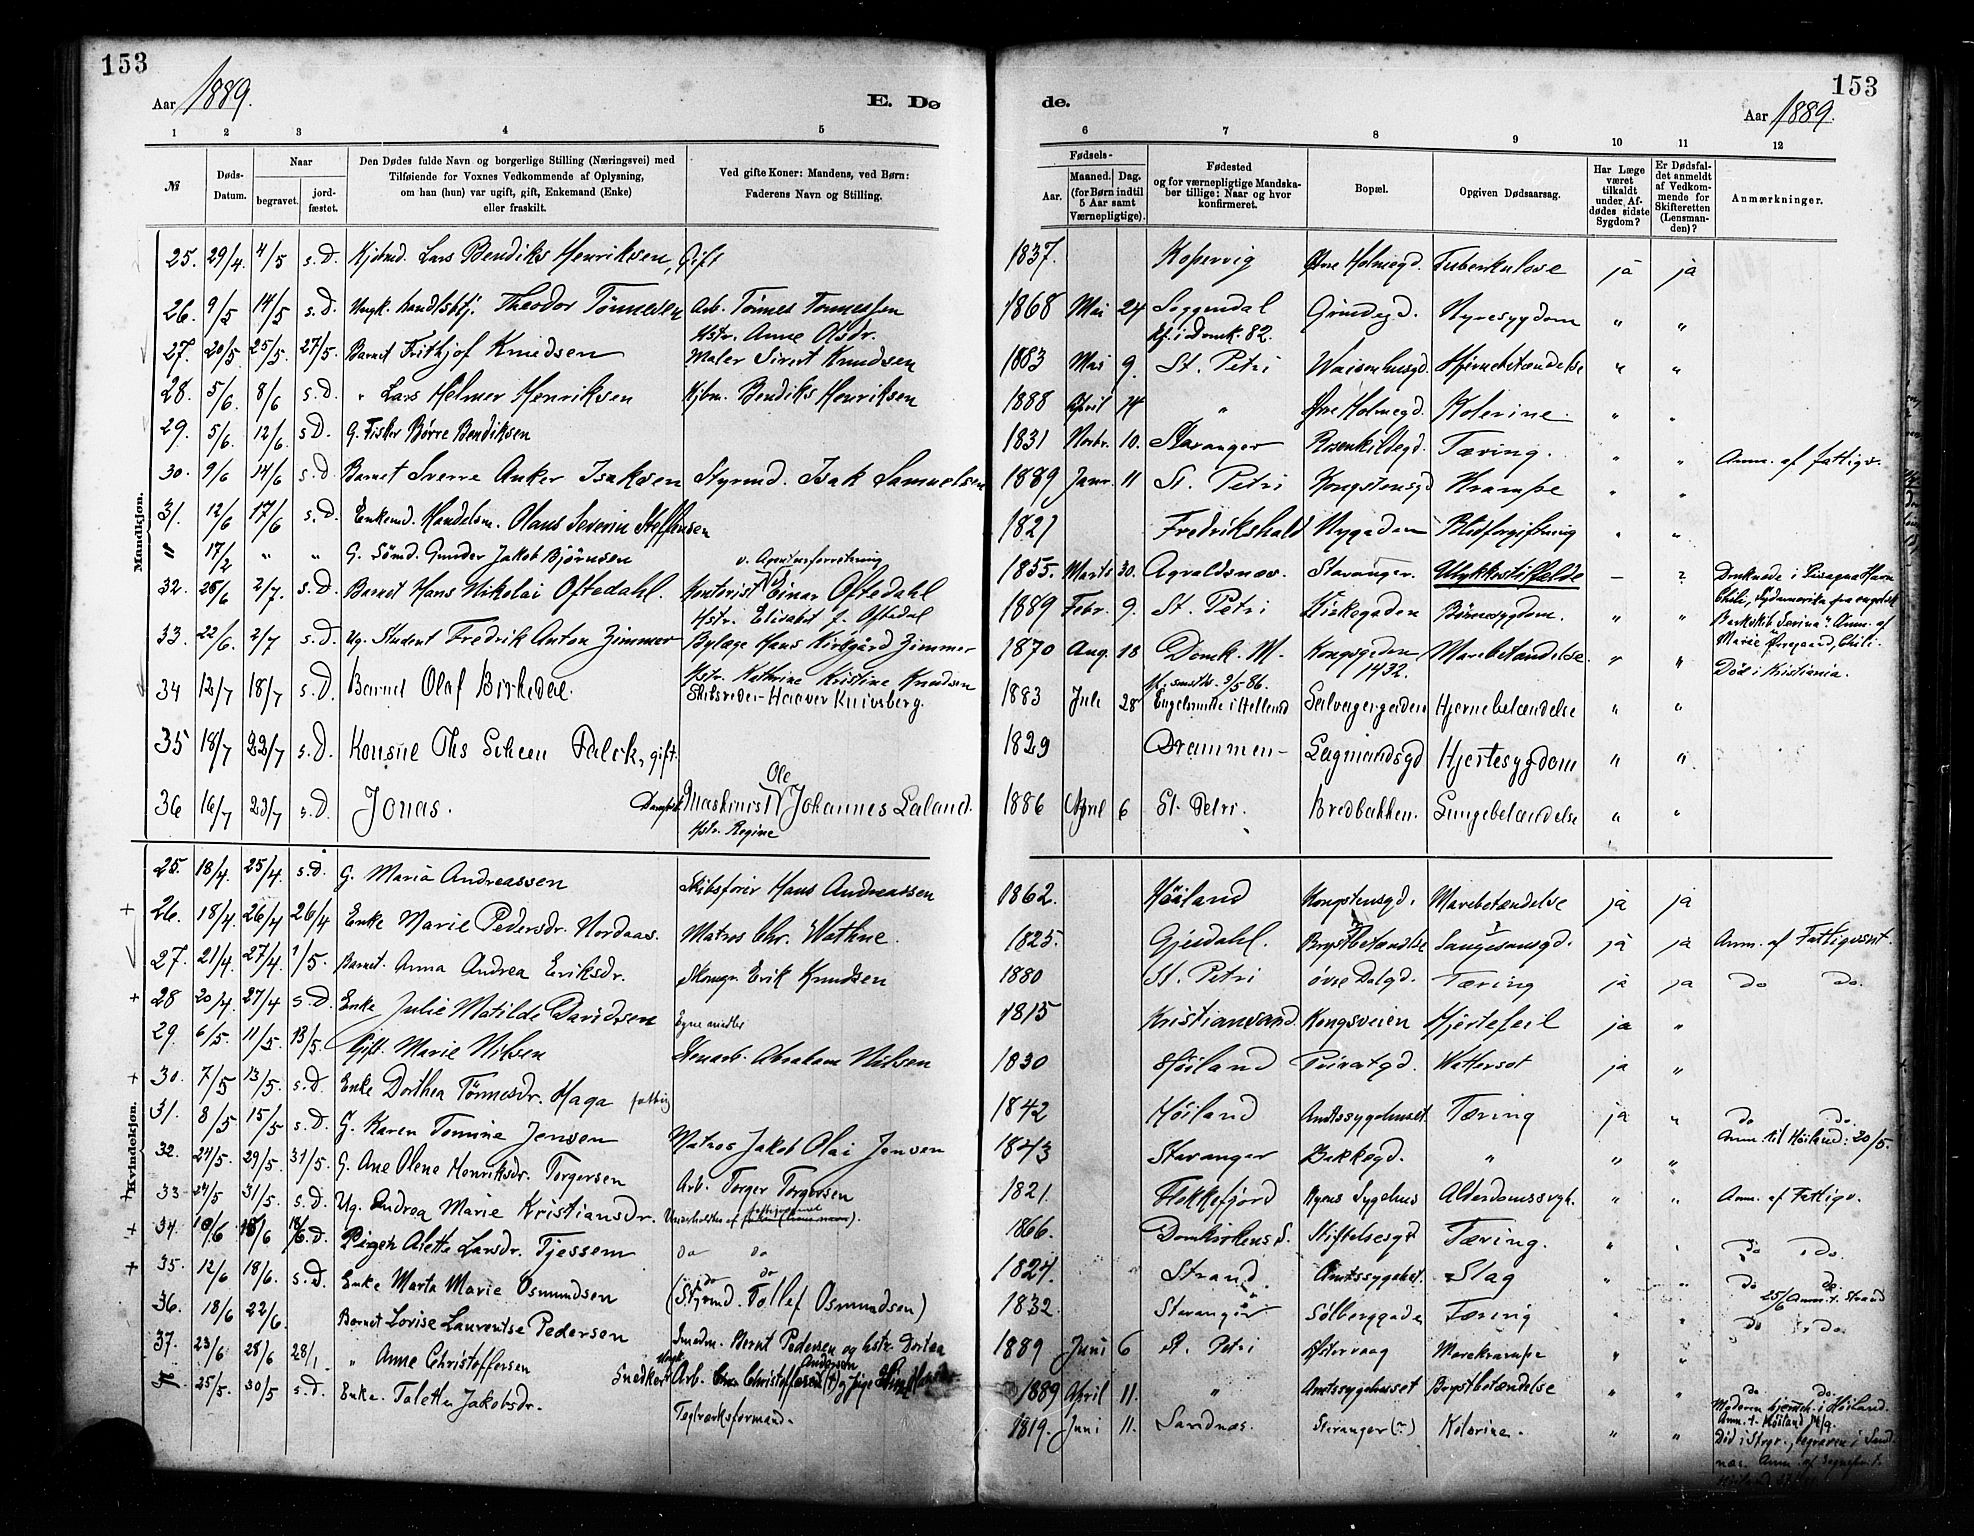 153
Aar 1889.
E. Dø
1 2 3 4 5
№
Døds-Datum.
Naar
begravet.
jord-fæstet.
Den Dødes fulde Navn og borgerlige Stilling (Næringsvei) med
Tilføiende for Voxnes Vedkommende af Oplysning,
om han (hun) var ugift, gift, Enkemand (Enke)
eller fraskilt.
Ved gifte Koner: Mandens, ved Børn:
Faderens Navn og Stilling.
Mandkjøn.
25. 29/4. 4/5 s.D. Kjøbmd. Lars Bendiks Henriksen, Gift
26. 9/5 14/5 s.D. Theodor Tønnesen Arb. Tønnes Tønnessen
Hstr. Anne Olsdr.
27. 20/5 25/5. 27/5. Barnet Frithjof Knudsen Maler Sivert Knudsen
28. 5/6. 8/6 s.D. " Lars Helmer Henriksen Kjbm. Bendiks Henriksen
29. 5/6. 12/6 s.D. G. Fisker Børre Bendiksen
30. 9/6 14/6 s.D. Barnet Sverre Anker Isaksen Styrmd. Isak Samuelsen
31. 12/6 17/6 s.D. Enkemd. Handelsm. Olaus Severin Steffensen
" 17/2 " " G. Sømd. Gunder Jakob Bjørnsen
v. Agenturforretning
32. 26/6 2/7. s.D. Barnet Hans Nikolai Oftedahl. Kontorist Einar Oftedahl
Hstr. Elisabet f. Oftedal
33. 22/6. 2/7 s.D. Ug. Student Fredrik Anton Zimmer Bylæge Hans Zimmer
Hstr. Kathrine Kristine Knudsen
34 12/7 18/7 s.D. Barnet Olaf Birkedal. Skibsreder Haaver Knivsberg.
35 18/7 22/7 s.D. Konsul Ths Scheen Falck, gift.
Ole
36 16/7 23/7 s.D. Jonas. Maskinist Johannes Laland.
Hstr. Regine
Kvindekjøn.
25. 18/4. 25/4. s.D. G. Maria Andreassen Skibsfører Hans Andreassen
26. 18/4. 26/4 26/4 Enke Marie Pedersdr. Nordaas. Matros Chr. Wathne.
27. 21/4. 27/4. 1/5. Barnet. Anna Andrea Eriksdr. Skomgr. Erik Knudsen
28 20/4. 27/4 s.D. Enke Julie Matilde Davidsen Egne midler
29. 6/5. 11/5. 13/5. Gift. Marie Nilsen Stenarb. Abraham Nilsen
30. 7/5 13/5. s.D. Enke Dorthea Tønnesdr. Haga fattig
31. 8/5 15/5 s.D. G. Karen Tomine Jensen Matros Jakob Olai Jensen
32. 24/5 29/5. 31/5. G. Ane Olene Henriksdr. Torgersen Arb. Torger Torgersen
33. 24/5 31/5. s.D. Ug. Andrea Marie Kristiansdr. Underholdtes af
34. 10/6 15/6 Pigen Alette Larsdr. Tjessem do do
35. 12/6 18/6. s.D. Enke Marta Marie Osmundsen do do
(Styrmd. Tollef Osmundsen)
36. 18/6 22/6. Barnet Lovise Laurentse Pedersen Bernt Pedersen og hstr. Dortea
37. 23/6 28/6 " Anne Christoffersen Snedker Arb. Andersen
25/5. 30/5 s.D. Enke. Taletta Jakobsdr. Teglverksformand.
153
de.
Aar 1889.
6 7 8 9 10 11 12
Fødsels-
Aar.
Maaned. Dag.
(for Børn indtil
5 Aar samt
Værnepligtige).
Fødested
og for værnepligtige Mandska-
ber tillige: Naar og hvor
konfirmeret.
Bopæl.
Opgiven Dødsaarsag.
Har Læge
været
tilkaldt
under Af-
dødes sidste
Sygdom?
Er Dødsfal-
det anmeldt
af Vedkom-
mende for
Skifteretten
(Lensman-
den)?
Anmærkninger.
1837. Kopervig Øvre Holmegd. Tuberkulose ja ja
1868 Mai 24 Soggendal Grindegd. Nyresygdom " "
kf. i Domk. 82.
1883 Mai 9. St. Petri Waisenhusgd. Hjernebetændelse " "
1888 April 14 " Øvre Holmegd. Kolerine. " "
1831 Novbr. 10. Stavanger Rosenkildegd. Tæring. " " Anm. af Fattigv.
1889 Janr. 11 St. Petri Kongstensgd Krampe " "
1821 Fredrikshald Nygaden Blodforgiftning " "
1855. Marts 30. Stavanger. Ulykkestilfælde — ? Druknede i Havn
Chili, Sydamerika fra engelsk
1889 Febr. 9. St. Petri Kirkegaden Børnesygdom. " " Barkskib "Serina". Anm. af
Marie Ørregaard, Chili.
1870 Aug. 18 Domk. M. Kongsgaden Mavebetændelse. " " Død i Kristiania.
1432.
1883 Juli 28 i Helland Solvegergaden Hjernebetændelse " "
1829 Drammen Lagmandsgd Hjertesygdom " "
1886 April 6 St. Petri. Bredbakken. Lungebetændelse " "
1862. Høiland Kongstensgd. Mavebetændelse ja ja
1825. Gjesdahl. Brystbetændelse Langesansgd. ja ja Anm. af Fattigvæsnt.
1880 St. Petri øvre Dalgd. Tæring ja ja Do Do.
1815 Kristiansand Kongsveien Hjertefeil ja "
1830 Høiland Privatgd. Wattersot ja "
1842 Høiland Amtssygehuset Tæring ja " Do Do.
Anm. til Høiland: 20/5.
1843 Stavanger Bakkegd. " " "
1821. Flekkefjord Byens Sygehus Alderdomssvgh. " " Anm. af Fattigv.
1866. Domkirkens S. Stiftelsesgd Tæring. " " Do Do.
1824. Strand Amtssygehst. Slag " " Do Do
25/6 Anm. t. Strand
1832. Stavanger Sølberggade Tæring " " Do Do.
1889 Juni 6 St. Petri Østervaag Mavekrampe " "
1889 April 11. " Amtssygehuset Brystbetændelse " " Do Do.
Moderen hjemh. i Høiland.
Anm. t. Høiland
1819. Juni 11. Sandnæs. Stavanger (?) Kolerine. " " Død i Stvgr., begraven i Sand-
næs.